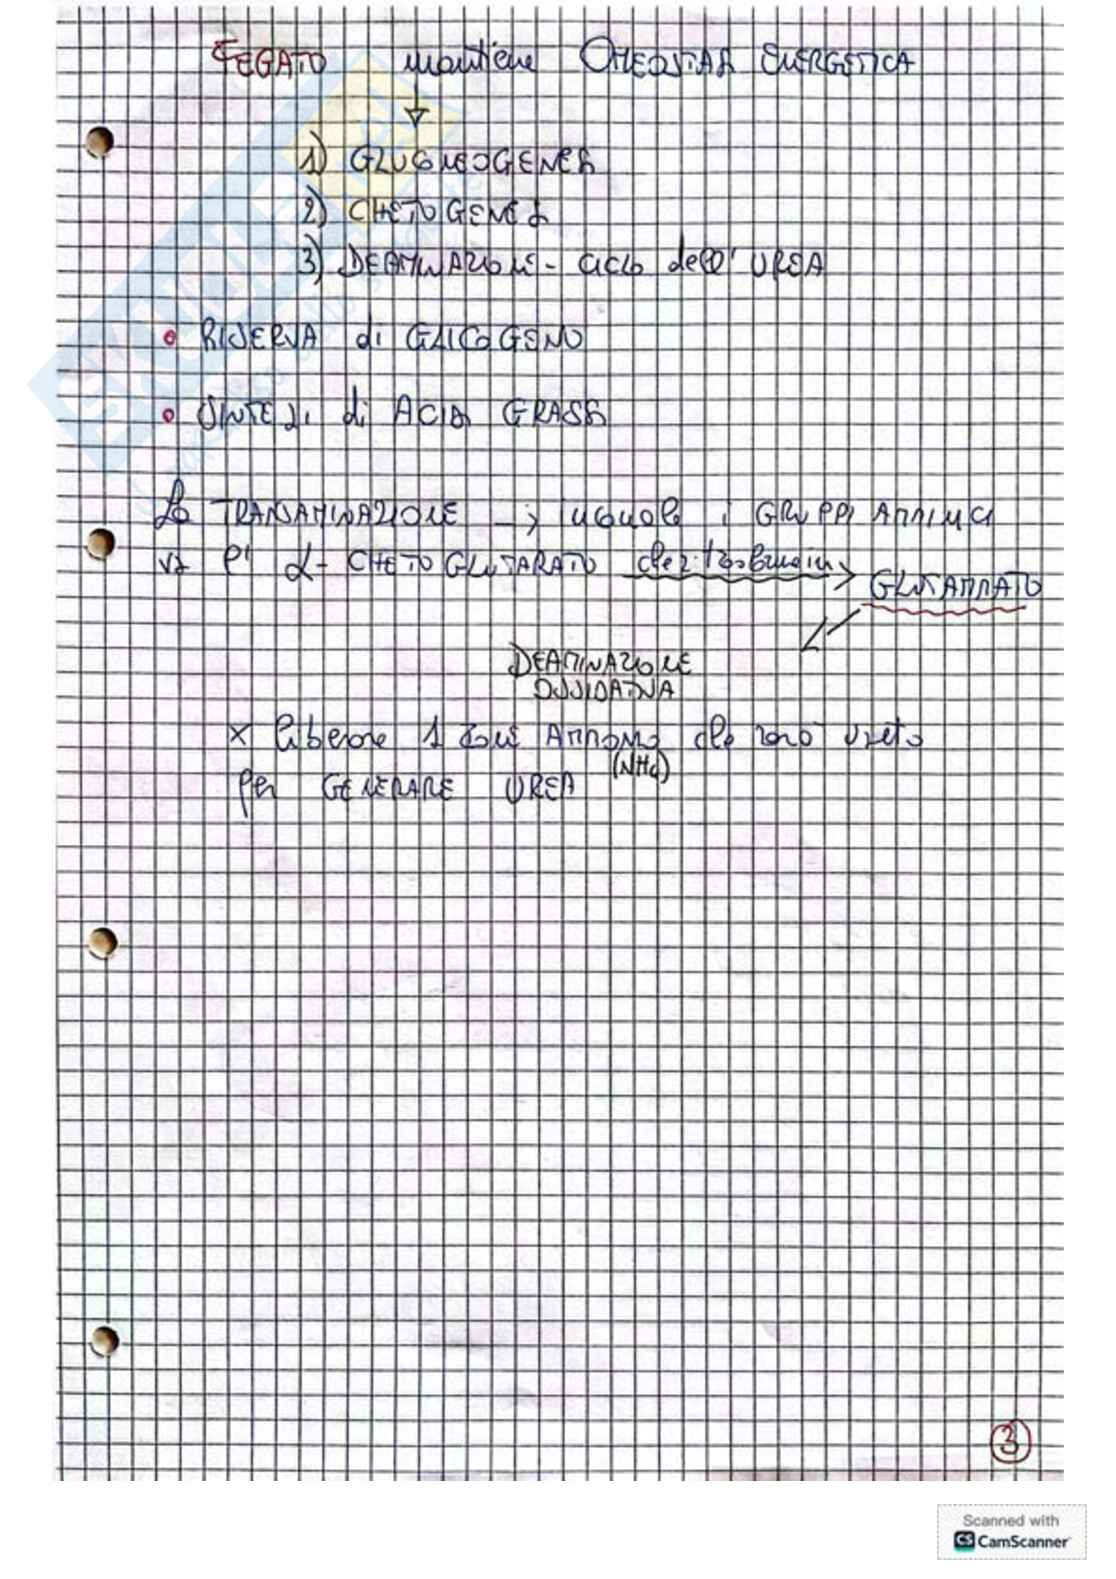 FEGATO mantiene OMEOSTASI ENERGETICA
1) GLUCONEOGENESI
2) CHETOGENESI
3) DEAMINAZIONE - ciclo dell' UREA
• RISERVA di GLICOGENO
• SINTESI di ACIDI GRASSI
La TRANSAMINAZIONE → i GRUPPI AMMINICI
l' α- CHETOGLUTARATO che si trasforma in → GLUTAMMATO
DEAMINAZIONE
OSSIDATIVA
x liberare 1 ione AMMONIO che sarà usato
(NH4)
per GENERARE UREA
3
Scanned with
CS CamScanner